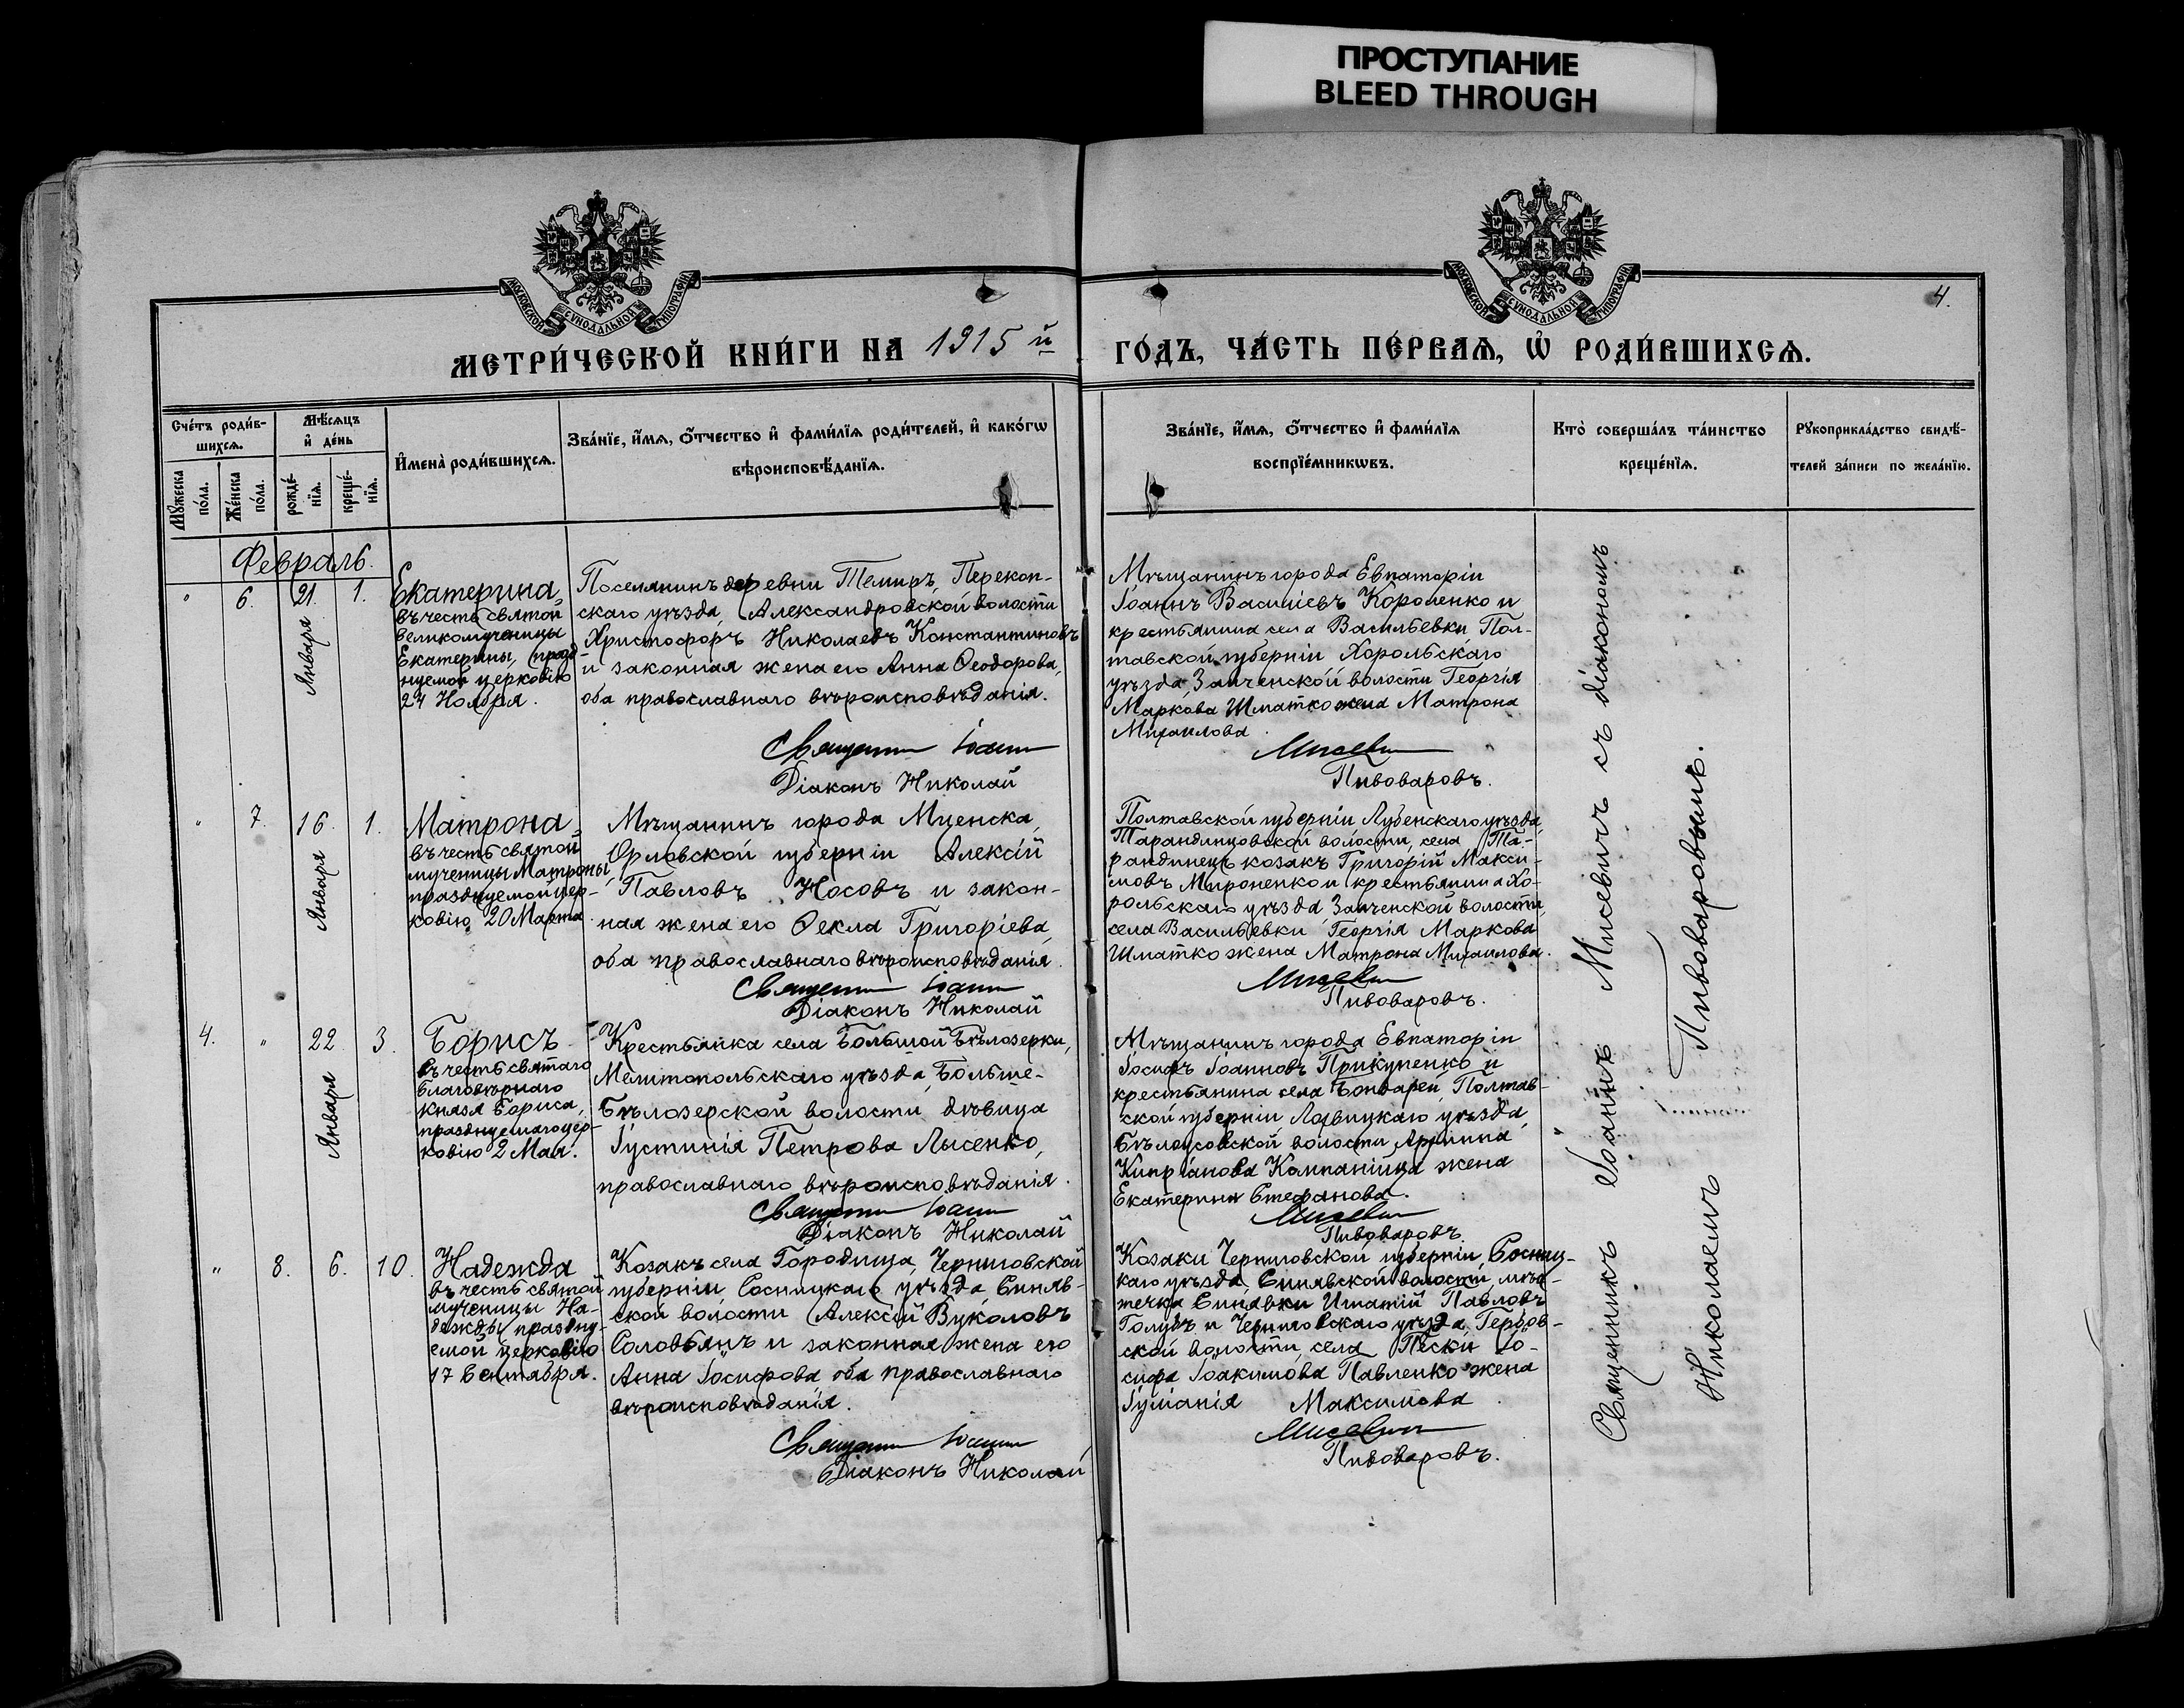 ПРОСТУПАНИЕ
BLEED THROUGH
МОСКОВСКОЙ СѴНОДАЛЬНОЙ ТИПОГРАФІИ
МОСКОВСКОЙ СѴНОДАЛЬНОЙ ТИПОГРАФІИ
4.
МЕТРИ́ЧЕСКОЙ КНИ́ГИ НА 1915 й
ГО́ДЪ, ЧА́СТЬ ПЕ́РВАѦ, Ѡ҆ РОДИ́ВШИХСѦ.
Сче́тъ роди́в-
шихсѧ.
Мꙋ́жеска по́ла.
Же́нска по́ла.
Мѣ́сѧцъ
и҆ де́нь
рожде́-
нїѧ.
креще́-
нїѧ.
И҆мена̀ роди́вшихсѧ.
Зва́нїе, и҆́мѧ, ѻ҆́тчество и҆ фами́лїѧ роди́телей, и҆ како́гѡ
вѣроисповѣ́данїѧ.
Зва́нїе, и҆́мѧ, ѻ҆́тчество и҆ фами́лїѧ
воспрїе́мникѡвъ.
Кто̀ соверша́лъ та́инство
креще́нїѧ.
Рꙋкоприкла́дство свидѣ́-
телей за́писи по жела́нїю.
Февраль.
" 6. 21. 1.
Января
Екатерина,
въ честь святой
великомученицы
Екатерины, празд-
нуемой церковію
24 Ноября.
Поселянинъ деревни Темиръ, Перекоп-
скаго уѣзда, Александровской волости
Христофоръ Николаевъ Константиновъ
и законная жена его Анна Ѳеодорова,
оба православнаго вѣроисповѣданія.
Священникъ Іоаннъ
Діаконъ Николай
Мѣщанинъ города Евпаторіи
Іоаннъ Василіевъ Короленко и
крестьянина села Васильевки, Пол-
тавской губерніи Хорольскаго
уѣзда, Заиченской волости Георгія
Маркова Шматко жена Матрона
Михаилова.
Мисевичъ
Пивоваровъ.
" 7. 16. 1.
Января
Матрона,
въ честь святой
мученицы Матроны,
празднуемой цер-
ковію 20 Марта.
Мѣщанинъ города Мценска,
Орловской губерніи Алексій
Павловъ Носовъ и закон-
ная жена его Ѳекла Григоріева,
оба православнаго вѣроисповѣданія.
Священникъ Іоаннъ
Діаконъ Николай
Полтавской губерніи Лубенскаго уѣзда,
Тарандинцовской волости, села Та-
рандинецъ козакъ Григорій Макси-
мовъ Мироненко и крестьянина Хо-
рольскаго уѣзда, Заиченской волости,
села Васильевки Георгія Маркова
Шматко жена Матрона Михаилова.
Мисевичъ
Пивоваровъ.
4. " 22. 3.
Января
Борисъ
въ честь святаго
благовѣрнаго
князя Бориса,
празднуемаго цер-
ковію 2 Мая.
Крестьянка села Большой Бѣлозерки,
Мелитопольскаго уѣзда, Больше-
Бѣлозерской волости дѣвица
Іустинія Петрова Лысенко,
православнаго вѣроисповѣданія.
Священникъ Іоаннъ
Діаконъ Николай
Мѣщанинъ города Евпаторіи
Іосифъ Іоанновъ Прикупенко и
крестьянина села Бондарей, Полтав-
ской губерніи, Лохвицкаго уѣзда,
Бѣлоусовской волости
Кипріанова Компанійца жена
Екатерина Стефанова.
Мисевичъ
Пивоваровъ.
" 8. 6. 10.
Надежда
въ честь святой
мученицы На-
дежды, праздну-
емой церковію
17 Сентября.
Козакъ села Городища, Черниговской
губерніи, Сосницкаго уѣзда, Синяв-
ской волости Алексій Вуколовъ
Соловьянъ и законная жена его
Анна Іосифова, оба православнаго
вѣроисповѣданія.
Священникъ Іоаннъ
Діаконъ Николай
Козаки Черниговской губерніи, Сосниц-
каго уѣзда, Синявской волости, мѣс-
течка Синявки Игнатій Павловъ
Голубъ и Черниговскаго уѣзда,
ской волости, села Пески Іо-
сифа Іоакимова Павленко жена
Іуліанія Максимова.
Мисевичъ
Пивоваровъ.
Священникъ Іоаннъ Мисевичъ съ діакономъ
Николаемъ Пивоваровымъ.